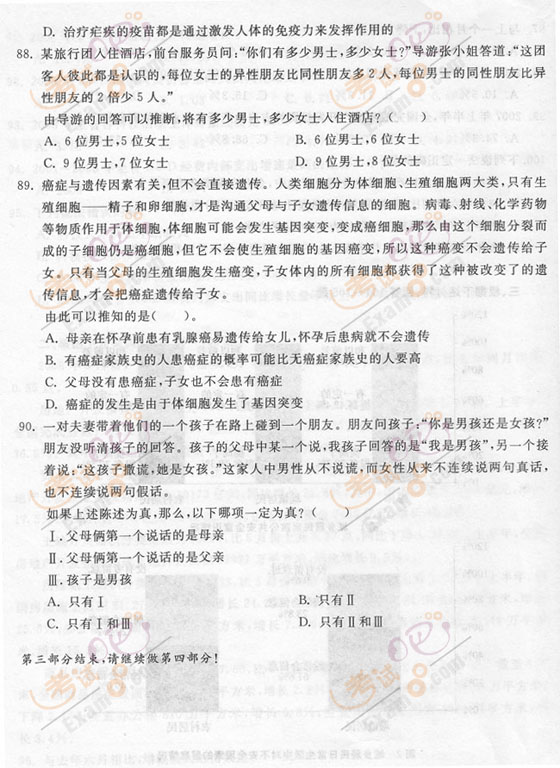 D. 治疗疟疾的疫苗都是通过激发人体的免疫力来发挥作用的
88. 某旅行团入住酒店,前台服务员问:“你们有多少男士,多少女士?”导游张小姐答道:“这团
客人彼此都是认识的,每位女士的异性朋友比同性朋友多2人,每位男士的同性朋友比异
性朋友的2倍少5人。”
由导游的回答可以推断,将有多少男士,多少女士人住酒店? ( )
A. 6位男士,5位女士 B. 6位男士,6位女士
C. 9位男士,7位女士 D. 9位男士,8位女士
89. 癌症与遗传因素有关,但不会直接遗传。人类细胞分为体细胞、生殖细胞两大类,只有生
殖细胞——精子和卵细胞,才是沟通父母与子女遗传信息的细胞。病毒、射线、化学药物
等物质作用于体细胞,体细胞可能会发生基因突变,变成癌细胞,那么由这个细胞分裂而
成的子细胞仍是癌细胞,但它不会使生殖细胞的基因癌变,所以这种癌变不会遗传给子
女。只有当父母的生殖细胞发生癌变,子女体内的所有细胞都获得了这种被改变了的遗
传信息,才会把癌症遗传给子女。
由此可以推知的是( )。
A. 母亲在怀孕前患有乳腺癌易遗传给女儿,怀孕后患病就不会遗传
B. 有癌症家族史的人患癌症的概率可能比无癌症家族史的人要高
C. 父母没有患癌症,子女也不会患有癌症
D. 癌症的发生是由于体细胞发生了基因突变
90. 一对夫妻带着他们的一个孩子在路上碰到一个朋友。朋友问孩子:“你是男孩还是女孩?”
朋友没听清孩子的回答。孩子的父母中某一个说,我孩子回答的是“我是男孩”,另一个接
着说:“这孩子撒谎,她是女孩。”这家人中男性从不说谎,而女性从来不连续说两句真话,
也不连续说两句假话。
如果上述陈述为真,那么,以下哪项一定为真? ( )
Ⅰ.父母俩第一个说话的是母亲
Ⅱ.父母俩第一个说话的是父亲
Ⅲ.孩子是男孩
A. 只有Ⅰ B. 只有Ⅱ
C. 只有Ⅰ和Ⅲ D. 只有Ⅱ和Ⅲ
第三部分结束,请继续做第四部分!